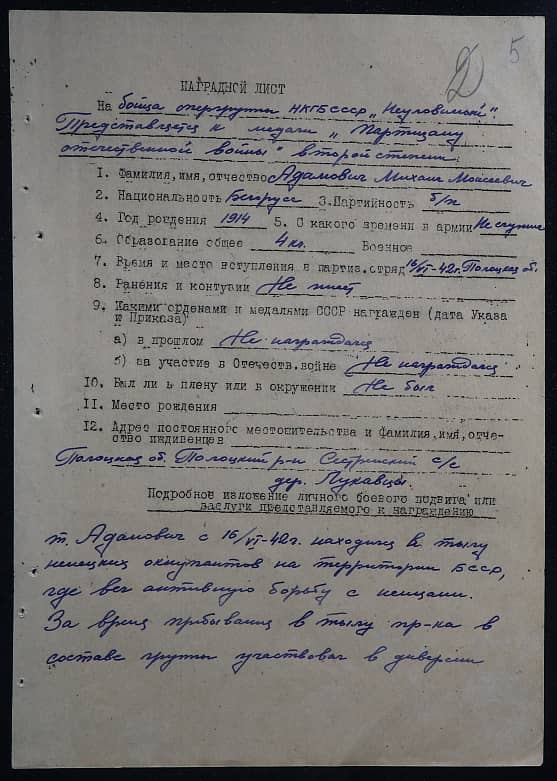 5
НАГРАДНОЙ ЛИСТ
На бойца опергруппы НКГБ БССР „Неуловимые".
Представляется к медали „Партизану
отечественной войны" второй степени
1. Фамилия, имя, отчество Адамович Михаил Моисеевич
2. Национальность Белорус 3. Партийность б/п
4. Год рождения 1914 5. С какого времени в армии Не служил
6. Образование общее 4 кл. Военное
7. Время и место вступления в партиз. отряд 16/VI-42г. Полоцкая об.
8. Ранения и контузии Не имет
9. Какими орденами и медалями СССР награжден (дата Указа
и Приказа)
а) в прошлом Не награждался
б) за участие в Отечеств. войне Не награждался
10. Был ли в плену или в окружении Не был
11. Место рождения
12. Адрес постоянного местожительства и фамилия, имя, отче-
ство иждивенцев
Полоцкая об. Полоцкий р-н с/с
дер. Лукавцы.
Подробное изложение личного боевого подвига или
заслуги представляемого к награждению
т. Адамович с 16/VI-42г. находился в тылу
немецких оккупантов на территории БССР,
где вел активную борьбу с немцами.
За время пребывания в тылу пр-ка в
составе группы участвовал в диверсии